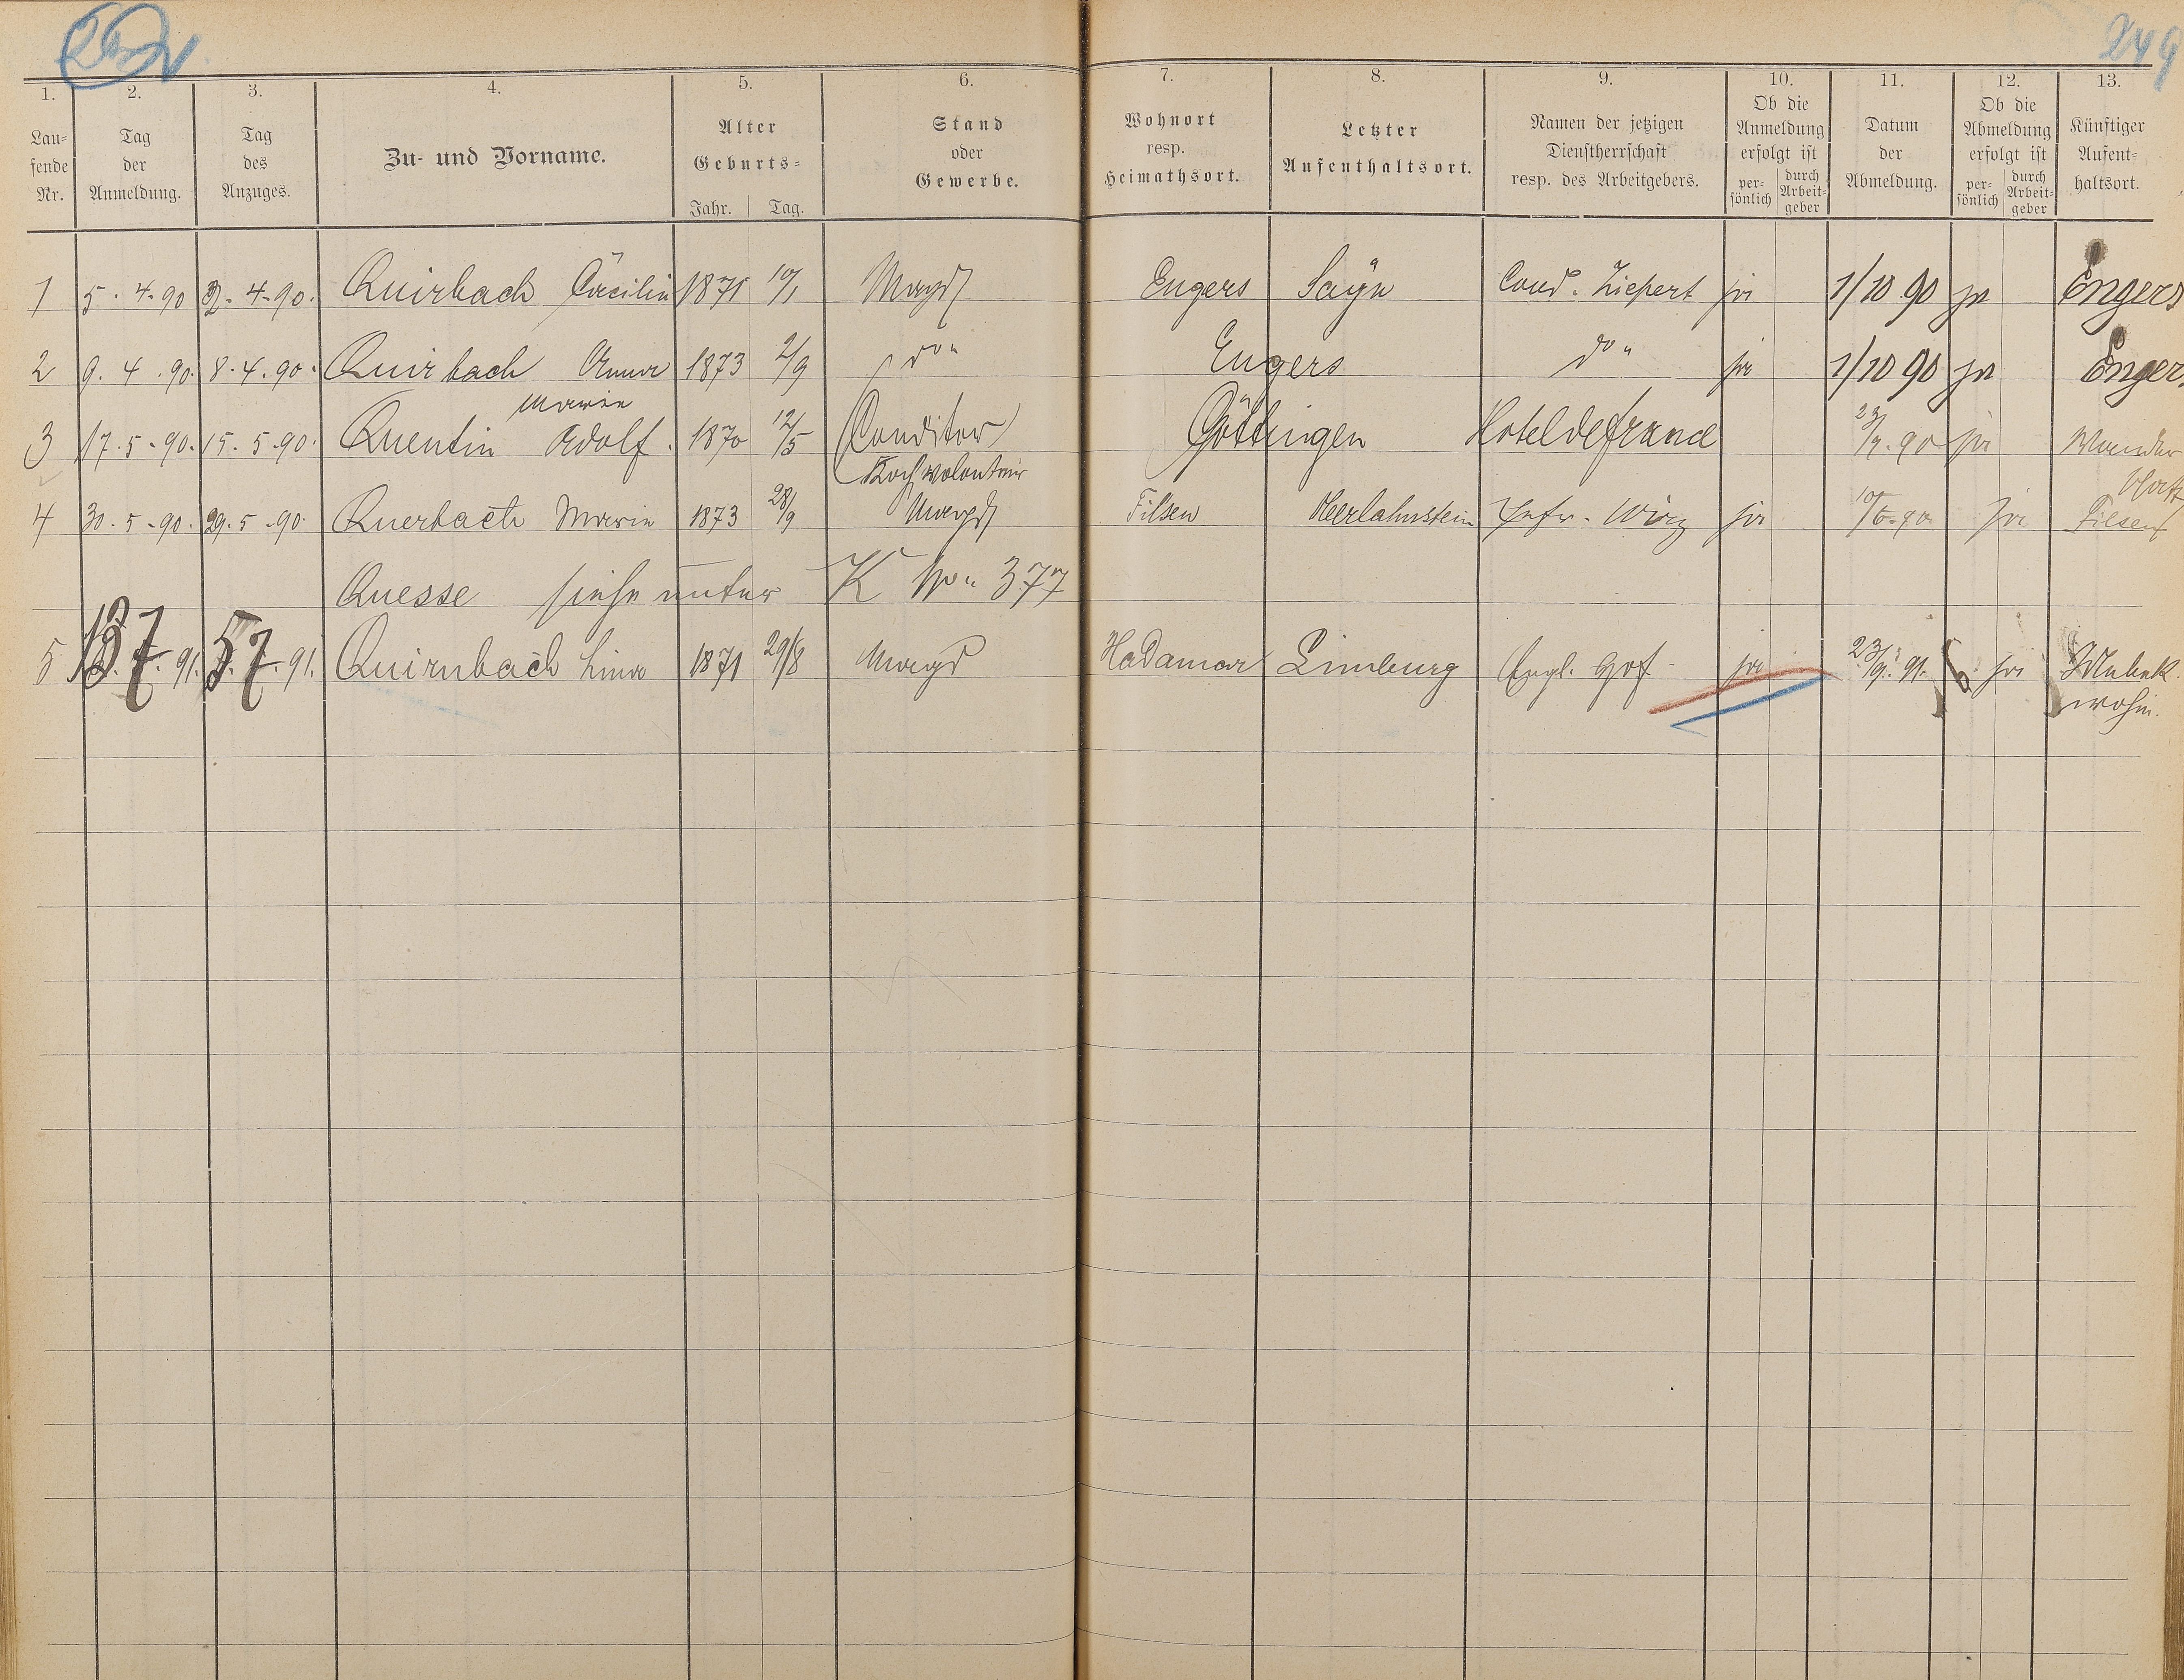 249
1. 2. 3. 4. 5. 6. 7. 8. 9. 10. 11. 12. 13.
Lau-
fende
Nr.
Tag
der
Anmeldung.
Tag
des
Anzuges.
Zu- und Vorname.
Alter
Geburts-
Jahr. Tag.
Stand
oder
Gewerbe.
Wohnort
resp.
Heimathsort.
Letzter
Aufenthaltsort.
Namen der jetzigen
Dienstherrschaft
resp. des Arbeitgebers.
Ob die
Anmeldung
erfolgt ist
per-
sönlich
durch
Arbeit-
geber
Datum
der
Abmeldung.
Ob die
Abmeldung
erfolgt ist
per-
sönlich
durch
Arbeit-
geber
Künftiger
Aufent-
haltsort.
1 5. 4. 90 2. 4. 90. Quirbach Cäcilia 1871 10/1 Magd Engers Sayn Cond. Liepert ja 1/10 90 ja Engers
2 9. 4. 90. 8. 4. 90. Quirbach Anna 1873 2/9 do Engers do ja 1/10 90 ja Engers
Maria
3 17. 5. 90. 15. 5. 90. Quentin Adolf. 1870 12/5 Conditor Göttingen Hotel de france 23/7. 90 ja
Koch volontair
4 30. 5. 90. 29. 5. 90. Querbach Maria 1873 28/9 Magd Filsen Oberlahnstein Wirz ja 10/6. 90 ja Filsen
Quesse siehe unter K No. 377
5 13 7. 91. 5 7. 91. Quirnbach Lina 1871 29/8 Magd Hadamar Limburg Engl. Hof ja 23/9. 91. ja Unbek.
wohin.